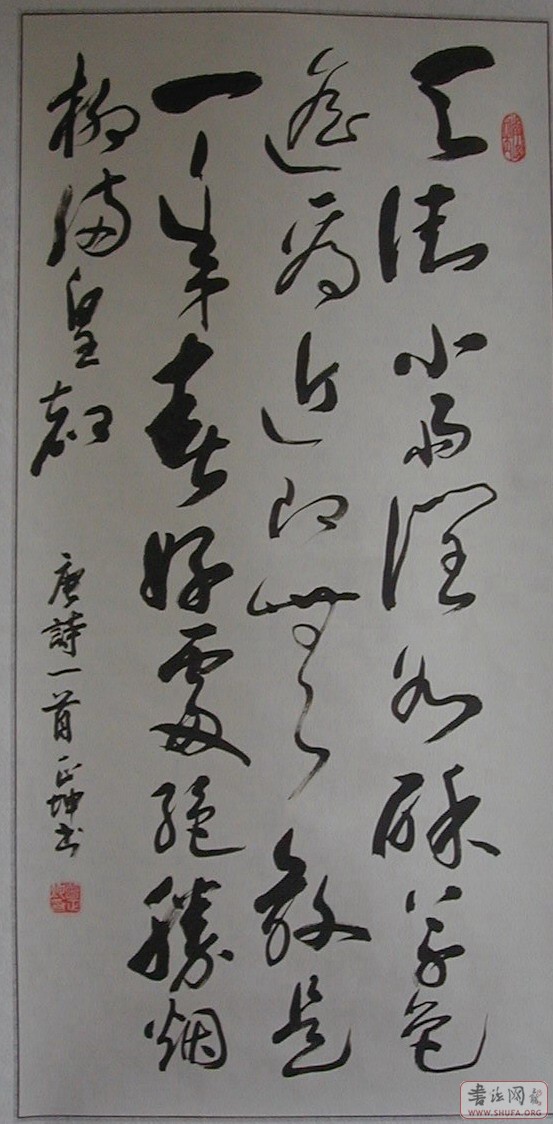 天街小雨潤如酥草色
遙看近却無最是
一年春好處絕勝烟
柳滿皇都
唐詩一首 正坤书
書法网
WWW.SHUFA.ORG